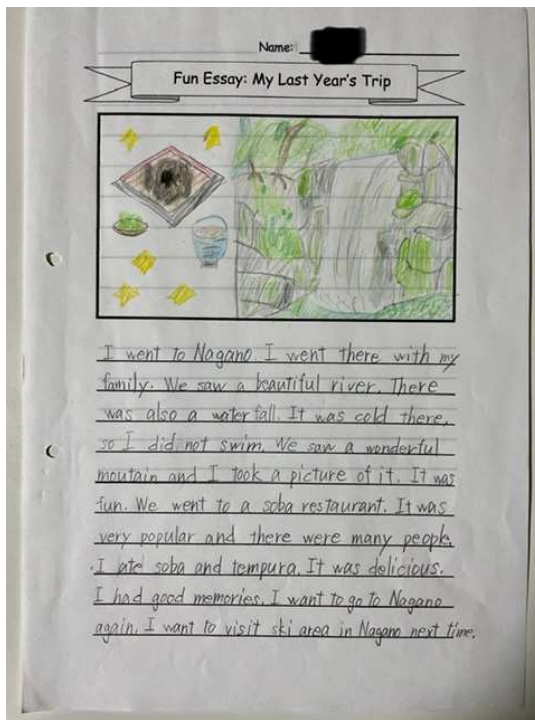 Name:
Fun Essay: My Last Year's Trip
I went to Nagano. I went there with my
family. We saw a beautiful river. There
was also a water fall. It was cold there,
so I did not swim. We saw a wonderful
moutain and I took a picture of it. It was
fun. We went to a soba restaurant. It was
very popular and there were many people.
I ate soba and tempura. It was delicious.
I had good memories. I want to go to Nagano
again. I want to visit ski area in Nagano next time.